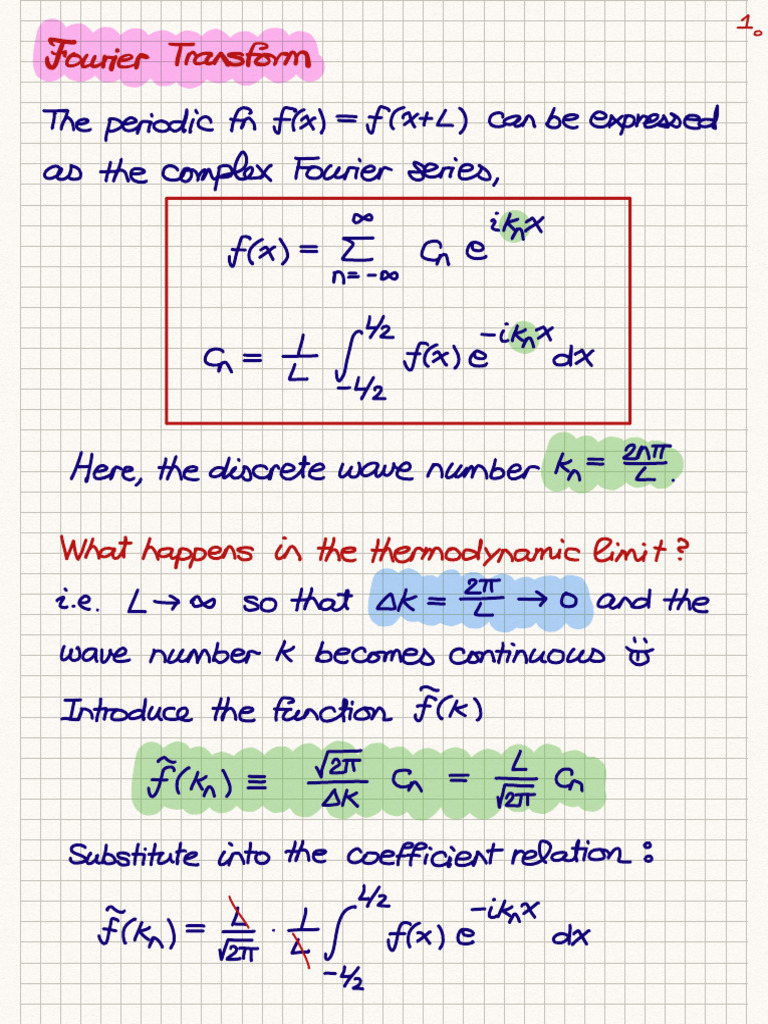 1.
Fourier Transform
The periodic fn f(x) = f(x+L) can be expressed
as the complex Fourier series,
f(x) = ∑_{n=-∞}^{∞} Cₙ e^{ikₙx}
Cₙ = 1/L ∫_{-L/2}^{L/2} f(x) e^{-ikₙx} dx
Here, the discrete wave number kₙ = 2nπ/L.
What happens in the thermodynamic limit?
i.e. L → ∞ so that Δk = 2π/L → 0 and the
wave number k becomes continuous 😃
Introduce the function f̃(k)
f̃(kₙ) ≡ √2π/Δk Cₙ = L/√2π Cₙ
Substitute into the coefficient relation:
f̃(kₙ) = L/√2π · 1/L ∫_{-L/2}^{L/2} f(x) e^{-ikₙx} dx